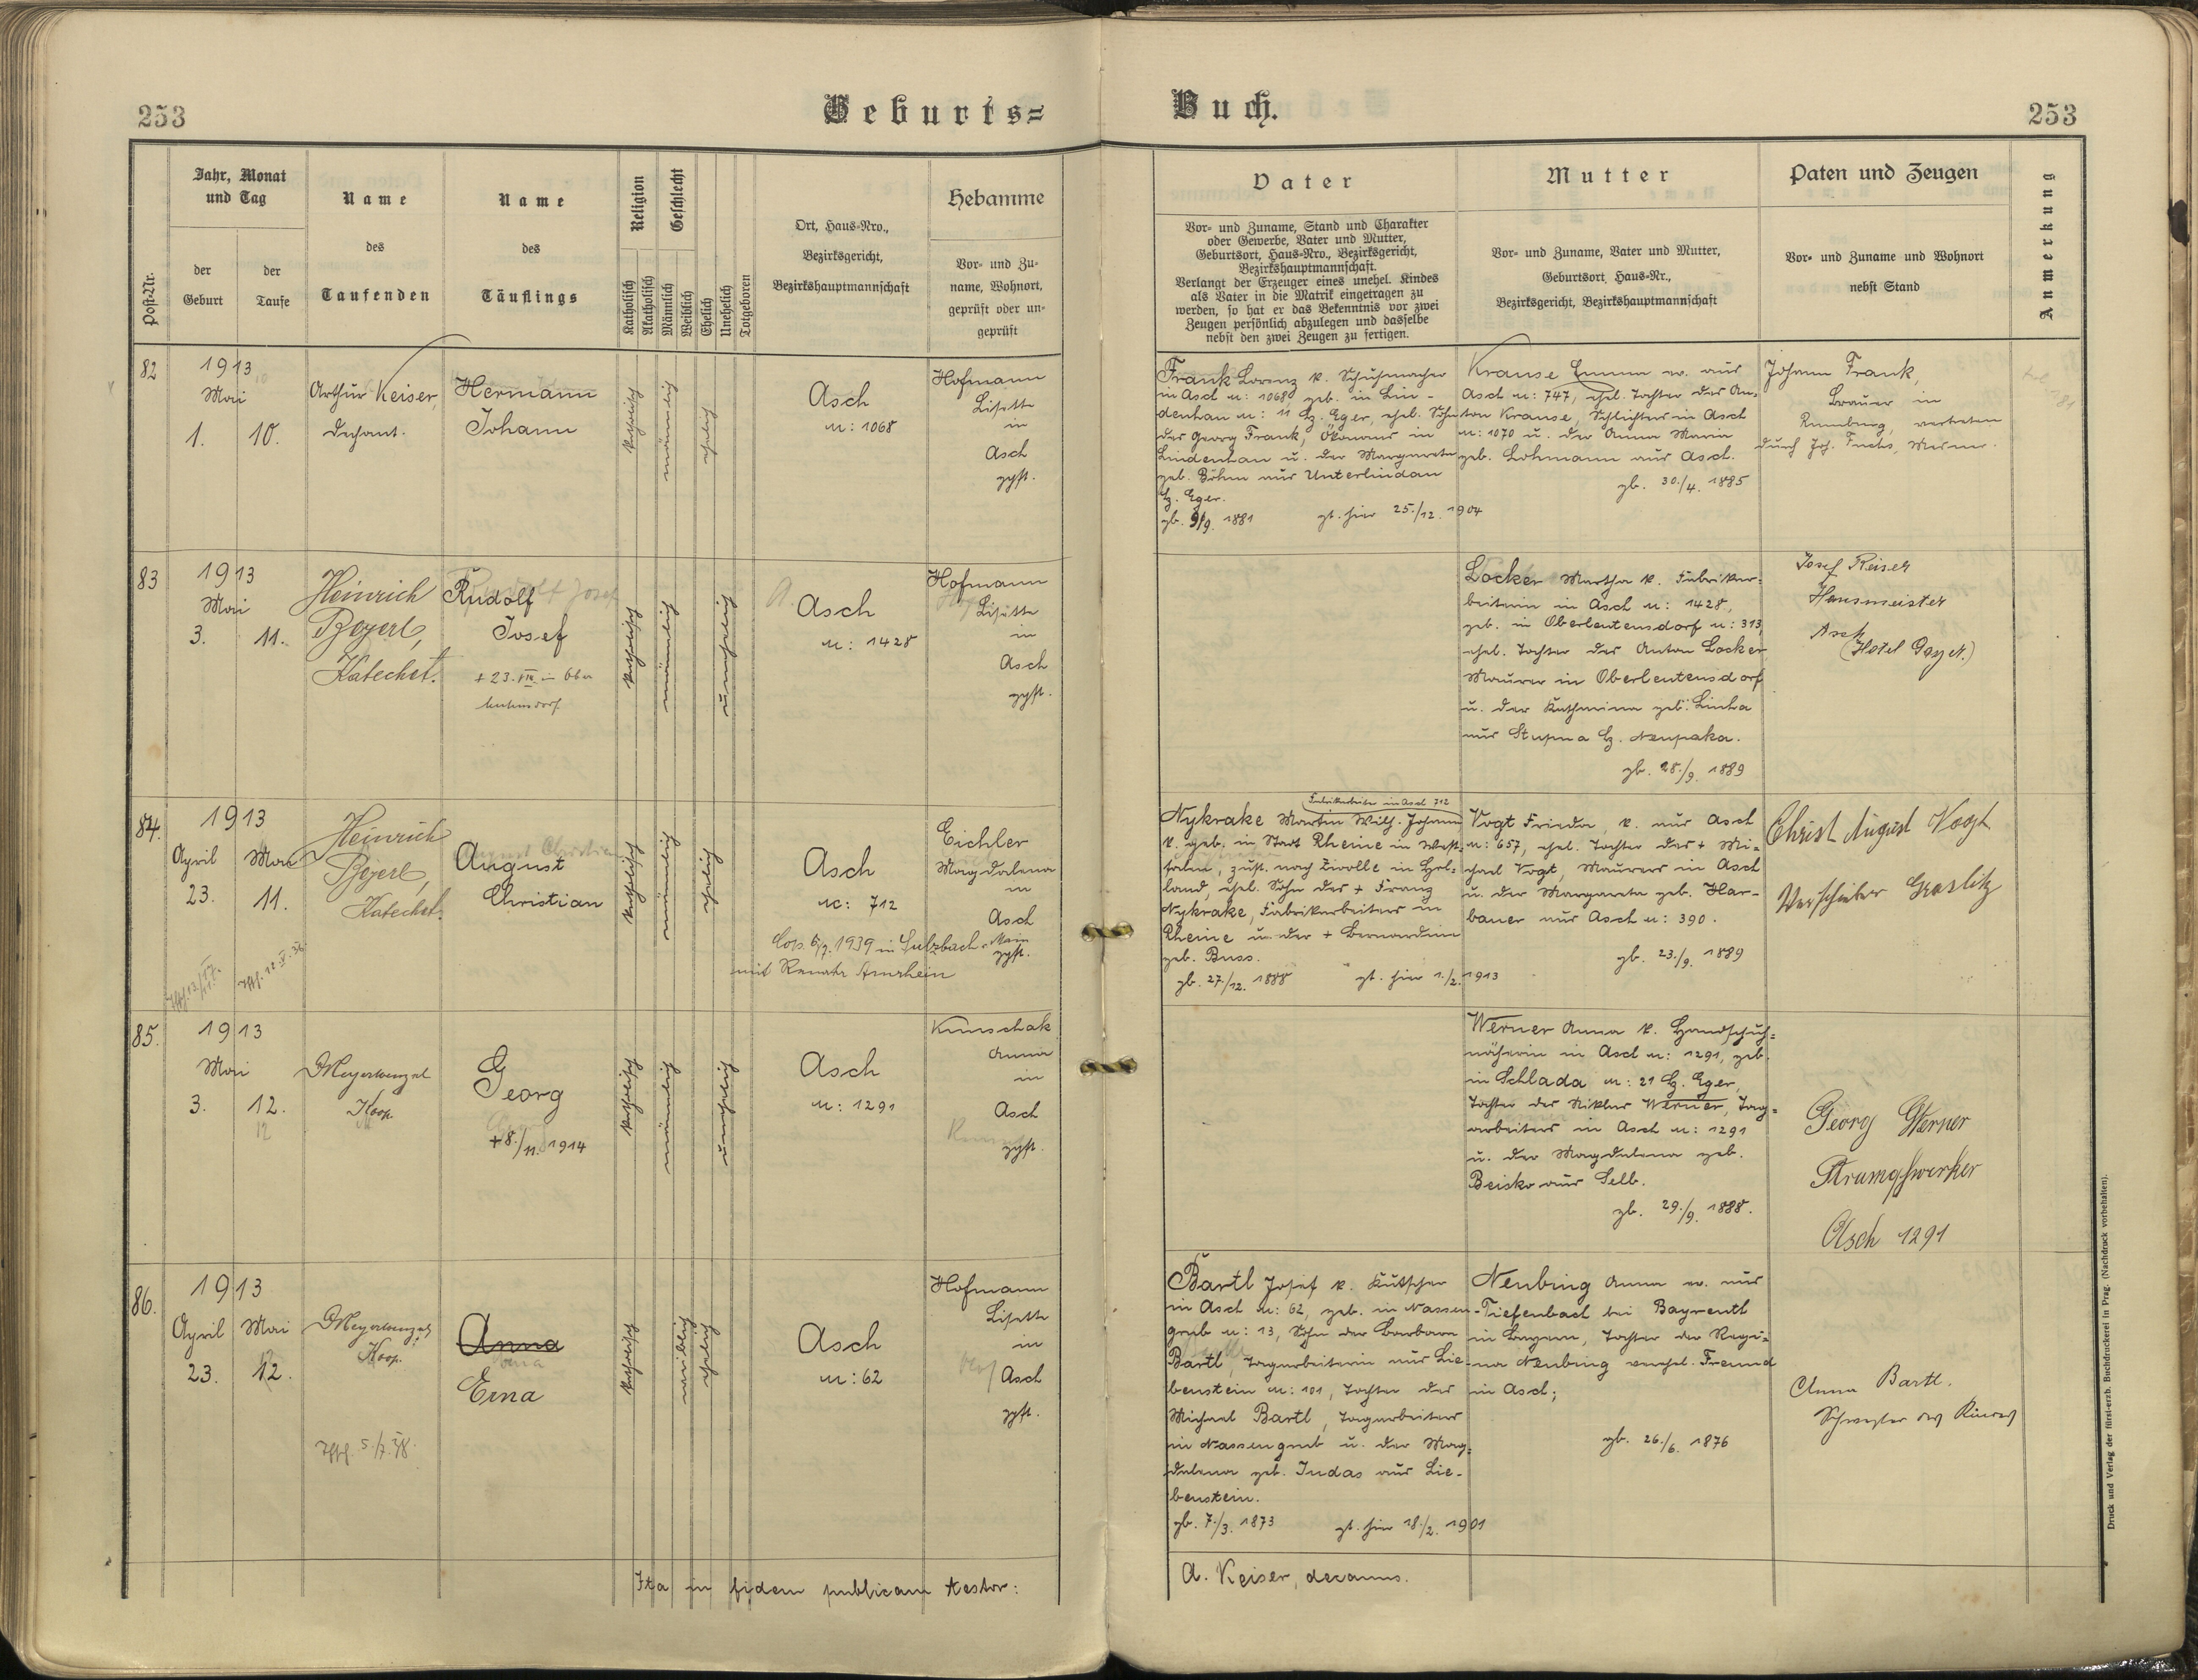 253
Geburts=
Buch.
253
Post-Nr.
Jahr, Monat
und Tag
der
Geburt
der
Taufe
Name
des
Taufenden
Name
des
Täuflings
Religion
Katholisch
Akatholisch
Geschlecht
Männlich
Weiblich
Ehelich
Unehelich
Totgeboren
Ort, Haus-Nro.,
Bezirksgericht,
Bezirkshauptmannschaft
Hebamme
Vor- und Zu-
name, Wohnort,
geprüft oder un-
geprüft
Vater
Vor- und Zuname, Stand und Charakter
oder Gewerbe, Vater und Mutter,
Geburtsort, Haus-Nro., Bezirksgericht,
Bezirkshauptmannschaft.
Verlangt der Erzeuger eines unehel. Kindes
als Vater in die Matrik eingetragen zu
werden, so hat er das Bekenntnis vor zwei
Zeugen persönlich abzulegen und dasselbe
nebst den zwei Zeugen zu fertigen.
Mutter
Vor- und Zuname, Vater und Mutter,
Geburtsort, Haus-Nr.,
Bezirksgericht, Bezirkshauptmannschaft
Paten und Zeugen
Vor- und Zuname und Wohnort
nebst Stand
Anmerkung
82
1913
Mai
1.
10.
Arthur Keiser,
Dechant.
Hermann
Johann
katholisch
männlich
ehelich
Asch
n: 1068
Hofmann
Lisette
in
Asch
gepft.
Frank Lorenz k. Schuhmacher
in Asch n: 1068 geb. in Lin-
denhau n: 11 Bz. Eger, ehel. Sohn
des Georg Frank, Ökonoms in
Lindenhau u. der Margareta
geb. Böhm aus Unterlindau
Bz. Eger.
gb. 9/9. 1881 gt. hier 25./12. 1904
Krause Emma ev. aus
Asch n: 747, ehel. Tochter des An-
ton Krause, Schlichters in Asch
n: 1070 u. der Anna Maria
geb. Lohmann aus Asch.
gb. 30./4. 1885
Johann Frank,
Brauer in
Rumburg, vertreten
durch Joh. Fuchs, Mesner.
83
1913
Mai
3.
11.
Heinrich
Beyerl,
Katechet.
Rudolf
Josef
+ 23. VIII. in Ober
leutensdorf
katholisch
männlich
unehelich
Asch
n: 1428
Hofmann
Lisette
in
Asch
gepft.
Locker Martha k. Fabrikar-
beiterin in Asch n: 1428,
geb. in Oberleutensdorf n: 313,
ehel. Tochter des Anton Locker
Maurer in Oberleutensdorf
u. der Katharina geb. Linha
aus Stupna Bz. Neupaka.
gb. 28./9. 1889
Josef Reiser
Hausmeister
Asch
(Hotel Geyer.)
84.
1913
April
23.
Mai
11.
Heinrich
Beyerl,
Katechet.
August
Christian
katholisch
männlich
ehelich
Asch
n: 712
Cop. 6/7. 1939 in Sulzbach a. Main
mit Renate Amrhein
Eichler
Magdalena
in
Asch
gepft.
Fabrikarbeiter in Asch 712
Nykrake Martin Wilh. Johann
k. geb. in Stadt Rheine in West-
falen, zust. nach Zwolle in Hol-
land, ehel. Sohn des + Franz
Nykrake, Fabrikarbeiters in
Rheine u. der + Bernardina
geb. Buss.
gb. 27/12. 1888 gt. hier 1./2. 1913
Vogt Frieda, k. aus Asch
n: 657, ehel. Tochter des + Mi-
chael Vogt, Maurers in Asch
u. der Margareta geb. Har-
bauer aus Asch n: 390.
gb. 23./9. 1889
Christ August Vogt
Verschieber Graslitz
85.
1913
Mai
3.
12.
Meyerwenzel
Koop.
Georg
+ 8./11. 1914
katholisch
männlich
unehelich
Asch
n: 1291
Künschak
Anna
in
Asch
gepft.
Werner Anna k. Handschuh-
näherin in Asch n: 1291, geb.
in Schlada n: 21 Bz. Eger,
Tochter des Niklas Werner, Tag-
arbeiters in Asch n: 1291
u. der Magdalena geb.
Beisko aus Selb.
gb. 29./9. 1888.
Georg Werner
Strumpfwirker
Asch 1291
86.
1913
April
23.
Mai
12.
Meyerwenzel
Koop.
Zfft. 5./7. 38.
Anna
Erna
katholisch
weiblich
ehelich
Asch
n: 62
Hofmann
Lisette
in
Asch
gepft.
Bartl Josef k. Kutscher
in Asch n: 62, geb. in Nassen-
grub n: 13, Sohn der Barbara
Bartl, Tagarbeiterin aus Lie-
benstein n: 101, Tochter des
Michael Bartl, Tagarbeiters
in Nassengrub u. der Mag-
dalena geb. Judas aus Lie-
benstein.
gb. 7./3. 1873 gt. hier 18./2. 1901
Neubing Anna ev. aus
Tiefenbach bei Bayreuth
in Bayern, Tochter der Regi-
na Neubing verehel. Freund
in Asch;
gb. 26./6. 1876
Anna Bartl.
Schwester des Kindes
Ita in fidem publicam testor:
A. Keiser, decanus.
Druck und Verlag der fürst-erzb. Buchdruckerei in Prag. (Nachdruck vorbehalten).